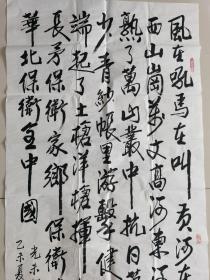 風在吼馬在叫黄河在
西山崗萬丈高河東河
熟了萬山叢中抗日
少青紗帳里游擊健
端起了土槍洋槍揮
長矛保衛家鄉保衛
華北保衛全中國
乙未夏